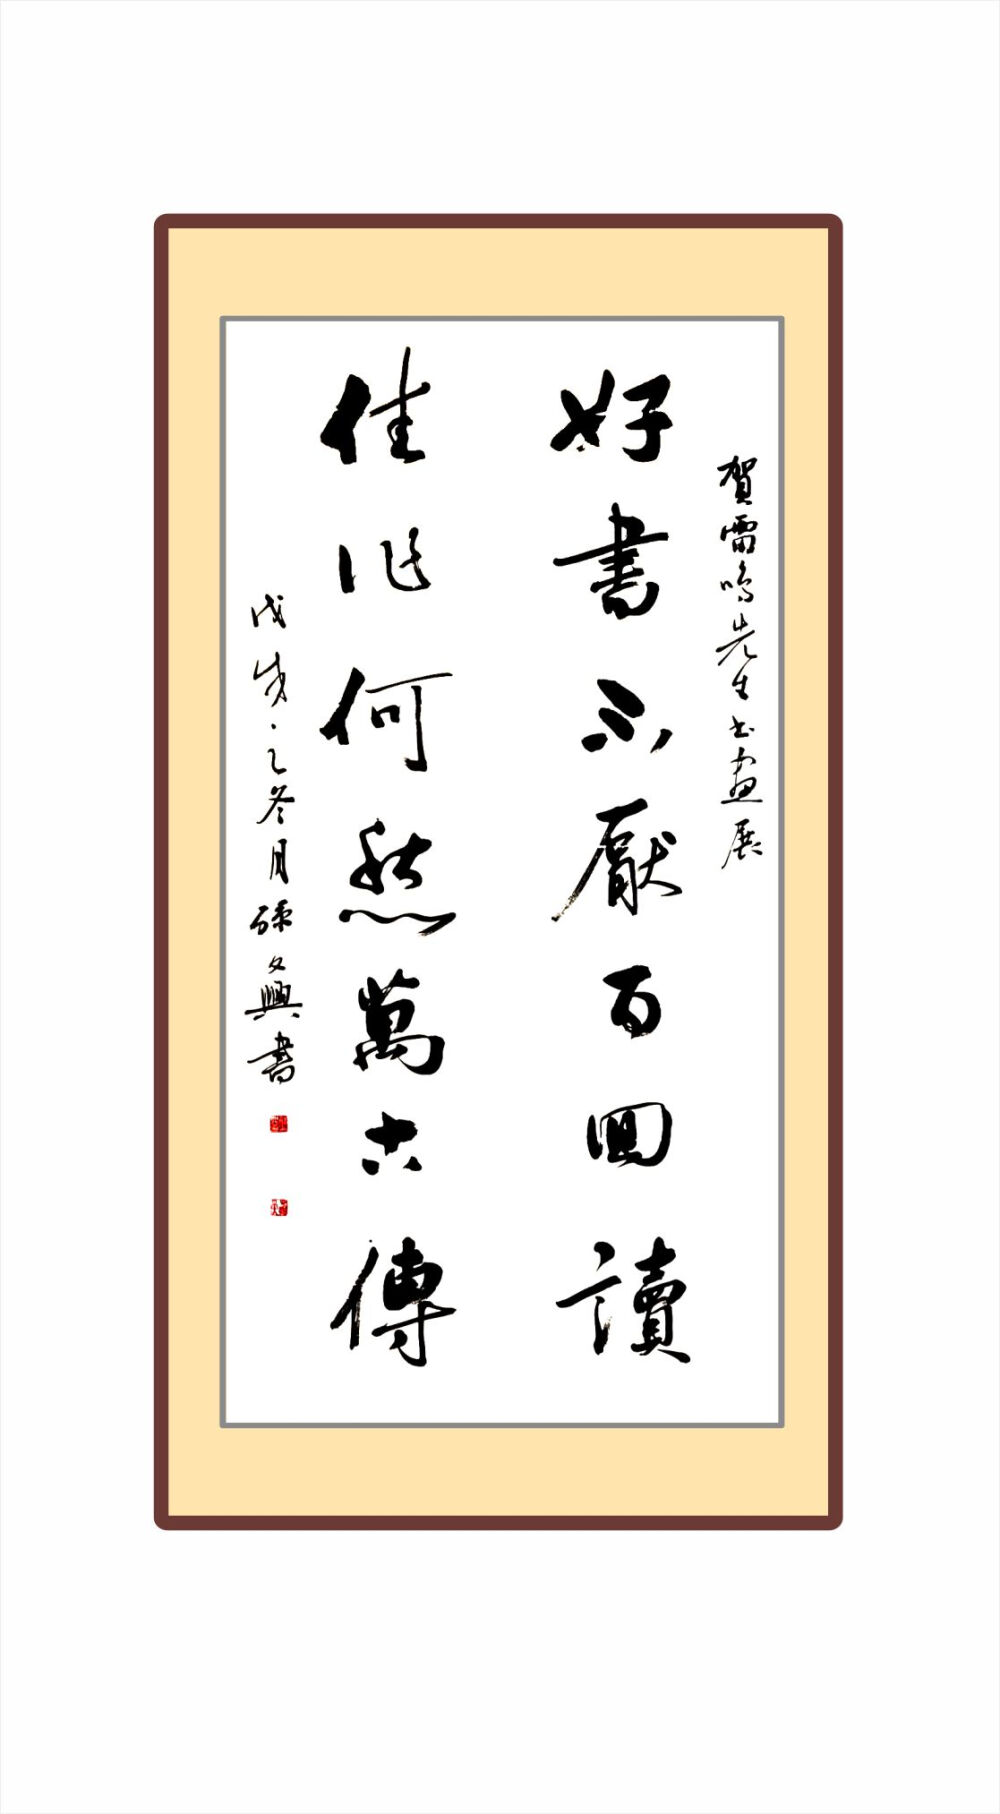 賀雷鳴先生书畫展
好書不厭百回讀
佳作何愁萬古傳
戊戌冬月孫文興書